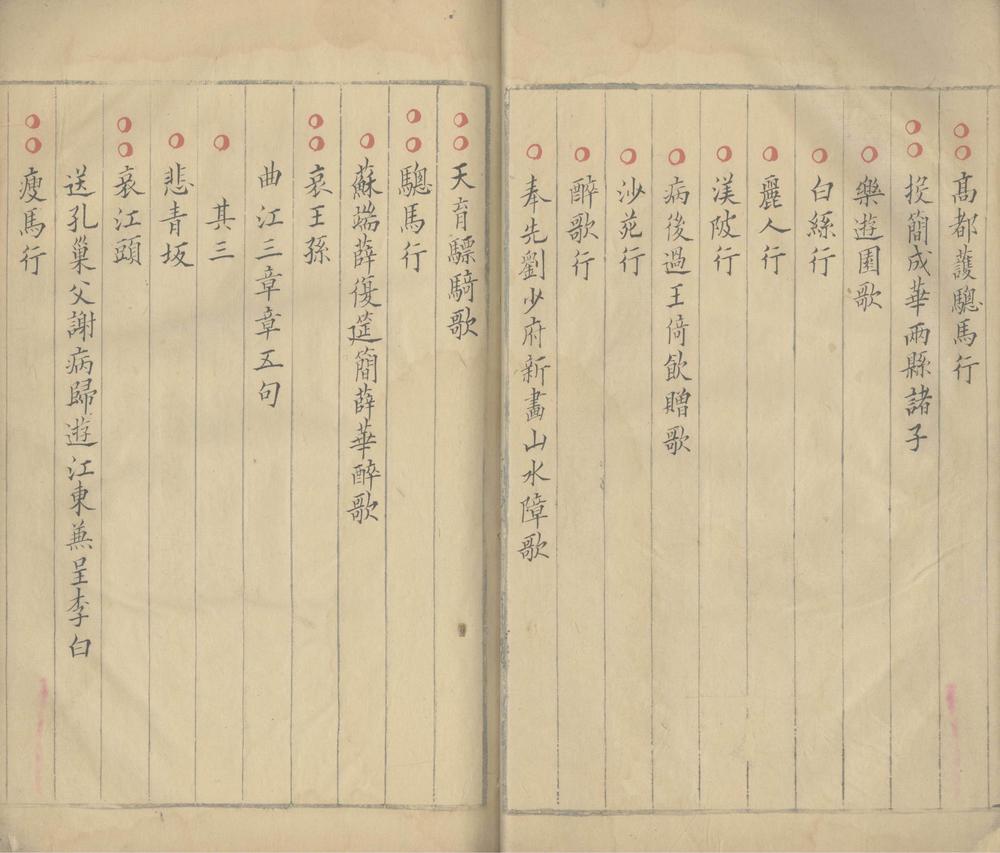 高都護驄馬行
投簡成華兩縣諸子
樂遊園歌
白絲行
麗人行
渼陂行
病後過王倚飲贈歌
沙苑行
醉歌行
奉先劉少府新畫山水障歌
天育驃騎歌
驄馬行
蘇端薛復筵簡薛華醉歌
哀王孫
曲江三章章五句
其三
悲青坂
哀江頭
送孔巢父謝病歸遊江東兼呈李白
瘦馬行